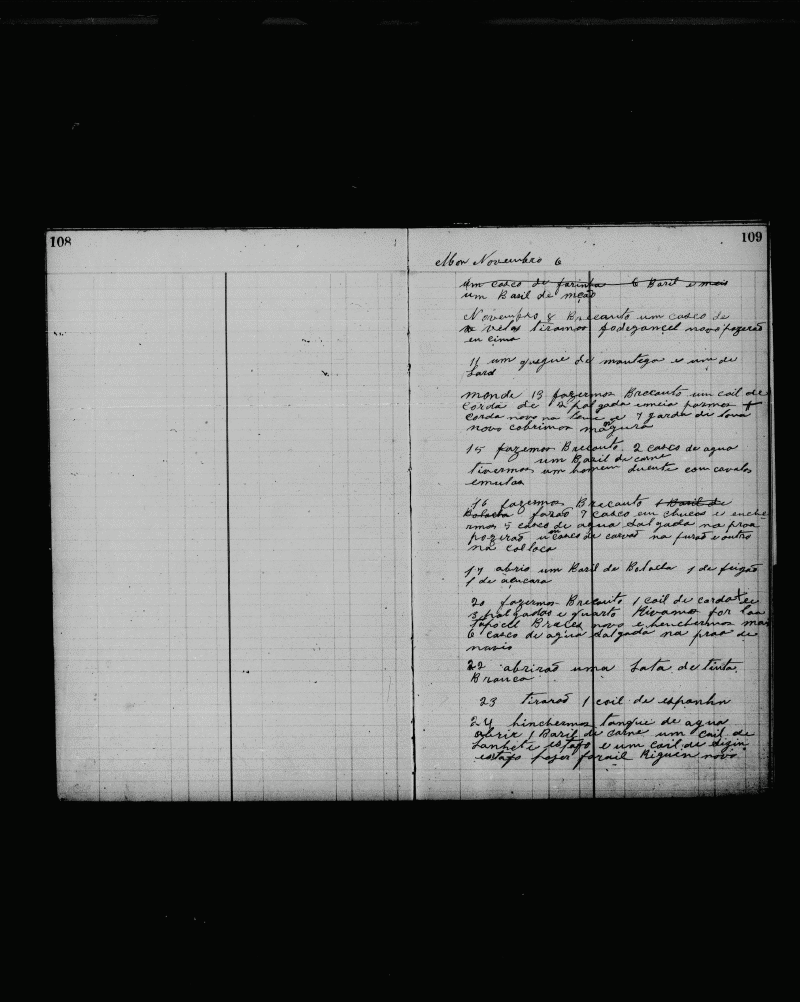 108
109
Mon Novembro 6
Um casco de farinha 6 Baril e mais
um Baril de
Novembro 8 Brecauto um casco de
velas tiramos novo pozerão
en cima
11 um quegue de mantega e um de
Lard
monde 13 fazermos Brecauto um coil de
corda de 2 palgada emeia pozmos
corda novo na e 7 garda di lona
novo cobrimos
15 fazemos Brecauto. 2 casco de agua
um Baril de carne
tivermos um homem duente com cavalos
emulas
16 fazermos Brecauto 1 Baril de
Bolacha forão 7 casco em chucos e enche
rmos 5 casco de agua salgada na proa
pozerão um casco de carvão na purão e outro
na
17 abrio um Baril de Bolacha 1 de feigão
1 de açucara
20 fazermos Brecauto 1 coil de corda
3 palgados e quarto Rivamos for
Braces novo e henchermos mas
6 casco de agua salgada na proa de
navio
22 abrirão uma Lata de tinta
Branca
23 tirarão 1 coil de espanhn
24 hinchermos tangue de agua
abrir 1 Baril de carne um coil de
e um coil de
novo